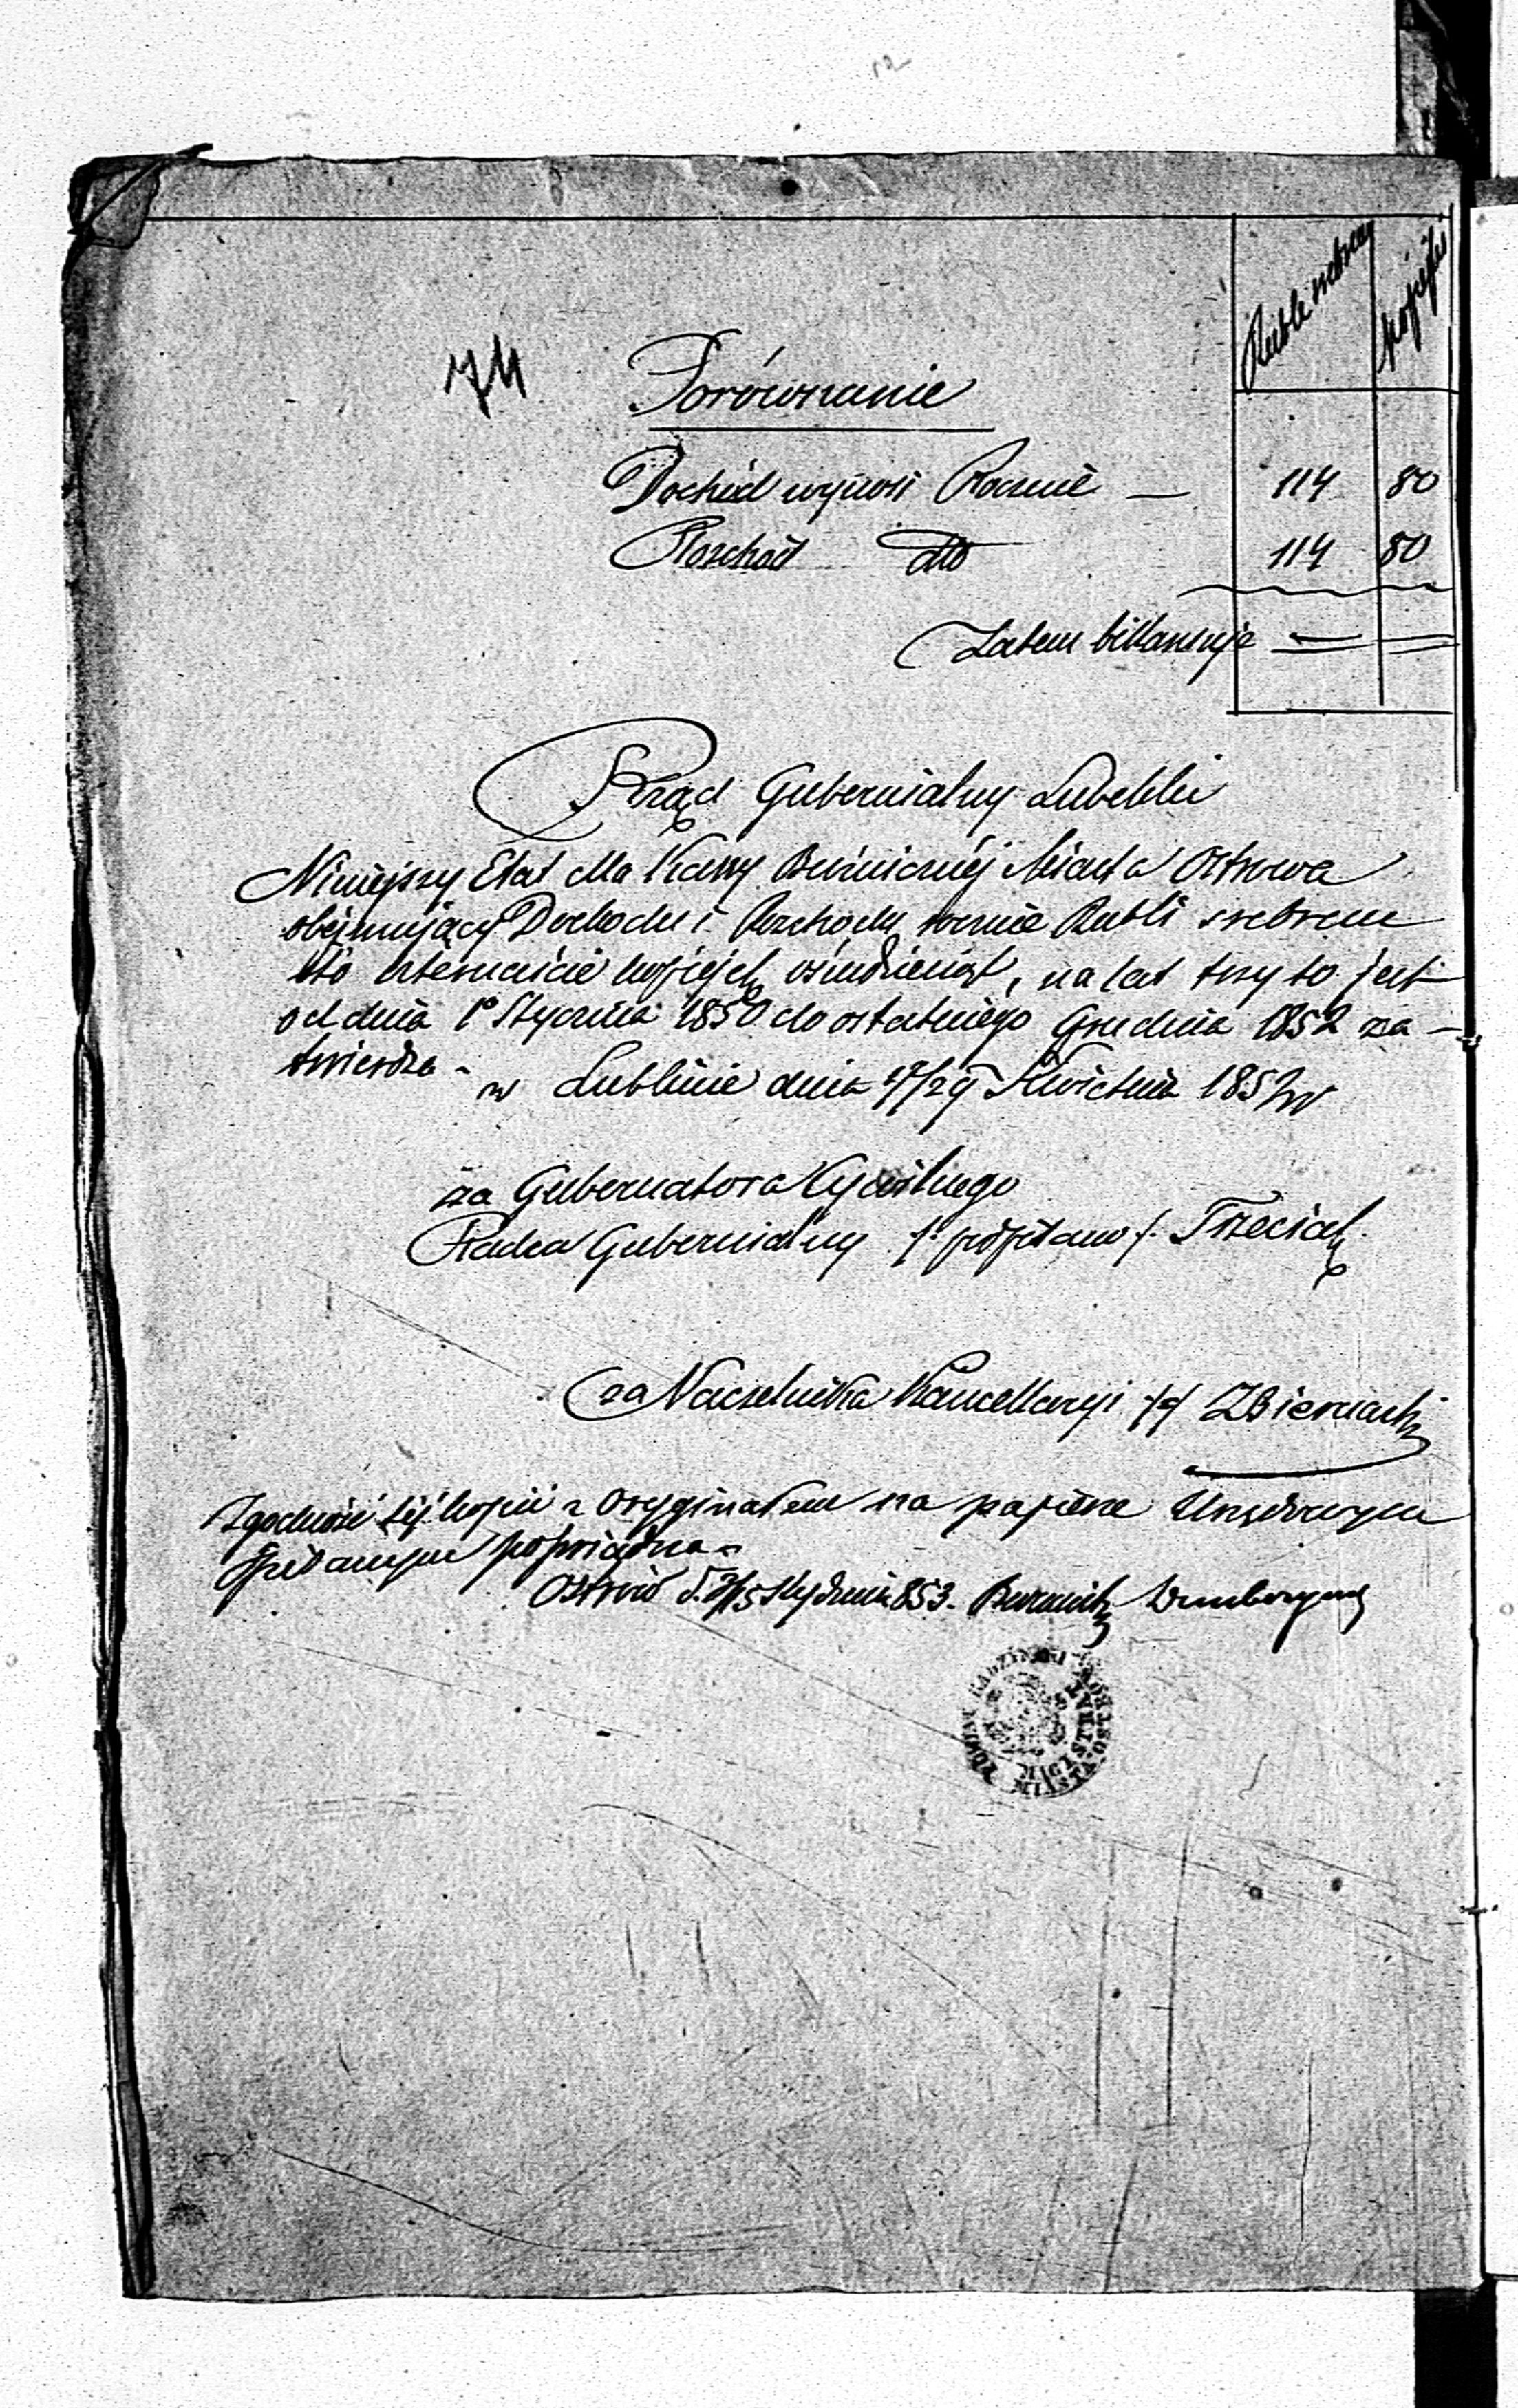 Ruble srebrem kopiejki
74
Porównanie
Dochód wynosi Rocznie — 114 80
Rozchód dtto 114 80
Zatem billansuje
Rząd Gubernialny Lubelski
Niniejszy Etat dla Kassy Bużnicznéj Miasta Ostrowa
obejmujący Dochodu i Rozchodu rocznie Rubli srebrem
sto czternaście kopiejek ośmdziesiąt, na lat trzy to jest
od dnia 1o Stycznia 1850 do ostatniego Grudnia 1852 za-
twierdza -
w Lublinie dnia 17/29 Kwietnia 1852 r
za Gubernatora Cywilnego
Radca Gubernialny /: podpisano /: Trzeciak
za Naczelnika Kancellaryi /-/ Z Biernacki
Zgodność téj kopii z Oryginałem na papierze Urzędowym
spisanym poświadcza -
Ostrów d. 3/15 Stycznia 853. Burmistrz